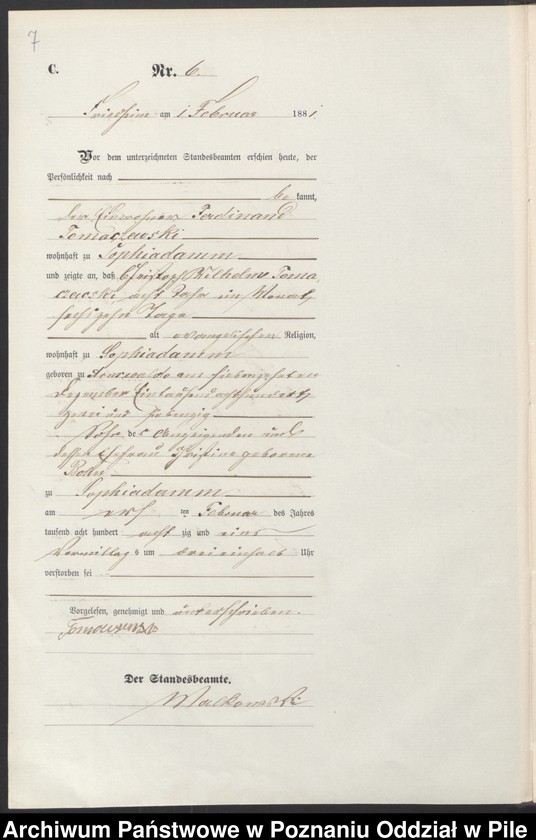 7
C. Nr. 6.
Friedheim am 1 Februar 1881
Vor dem unterzeichneten Standesbeamten erschien heute, der
Persönlichkeit nach
be kannt,
der Einwohner Ferdinand
Tomaczewski
wohnhaft zu Sophiadamm
und zeigte an, daß Christoph Wilhelm Toma
czewski acht Jahr ein Monat
sechszehn Tage
alt evangelischen Religion,
wohnhaft zu Sophiadamm
geboren zu am siebenzehnten
Dezember Eintausendachthundert
zwei und siebenzig
Sohn des Anzeigenden und
dessen Ehefrau Christine geborene
zu Sophiadamm
am ersten Februar des Jahres
tausend acht hundert acht zig und eins
Vormittags um drei einhalb Uhr
verstorben sei
Vorgelesen, genehmigt und unterschrieben.
Der Standesbeamte.
Malkowski
Archiwum Państwowe w Poznaniu Oddział w Pile